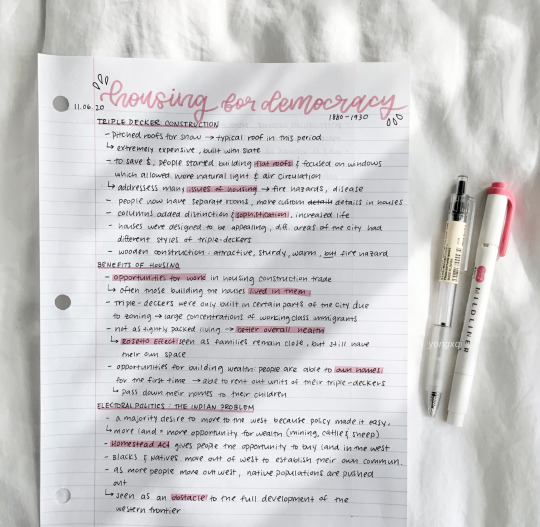 housing for democracy
11.06.20
1880-1930
TRIPLE DECKER CONSTRUCTION
- pitched roofs for snow → typical roof in this period
↳ extremely expensive, built with slate
- to save $, people started building flat roofs & focused on windows
which allowed more natural light & air circulation
↳ addressess many issues of housing → fire hazards, disease
- people now have separate rooms, more custom details in houses
- columns added distinction & sophistication, increased life
- houses were designed to be appealing, diff. areas of the city had
different styles of triple-deckers
- wooden construction: attractive, sturdy, warm, but fire hazard
BENEFITS OF HOUSING
- opportunities for work in housing construction trade
↳ often those building the houses lived in them
- Triple-deckers were only built in certain parts of the city due
to zoning → large concentrations of working class immigrants
- not as tightly packed living → better overall health
↳ Rosetto Effect seen as families remain close, but still have
their own space
- opportunities for building wealth: people are able to own homes
for the first time → able to rent out units of their triple-deckers
↳ pass down their homes to their children
ELECTORAL POLITICS: THE INDIAN PROBLEM
- a majority desire to move to the west because policy made it easy,
↳ more land = more opportunity for wealth (mining, cattle & sheep)
- Homestead Act gives people the opportunity to buy land in the west
- Blacks & Natives move out of west to establish their own commun.
- as more people move out west, native populations are pushed
out
↳ seen as an obstacle to the full development of the
western frontier
MILDLINER